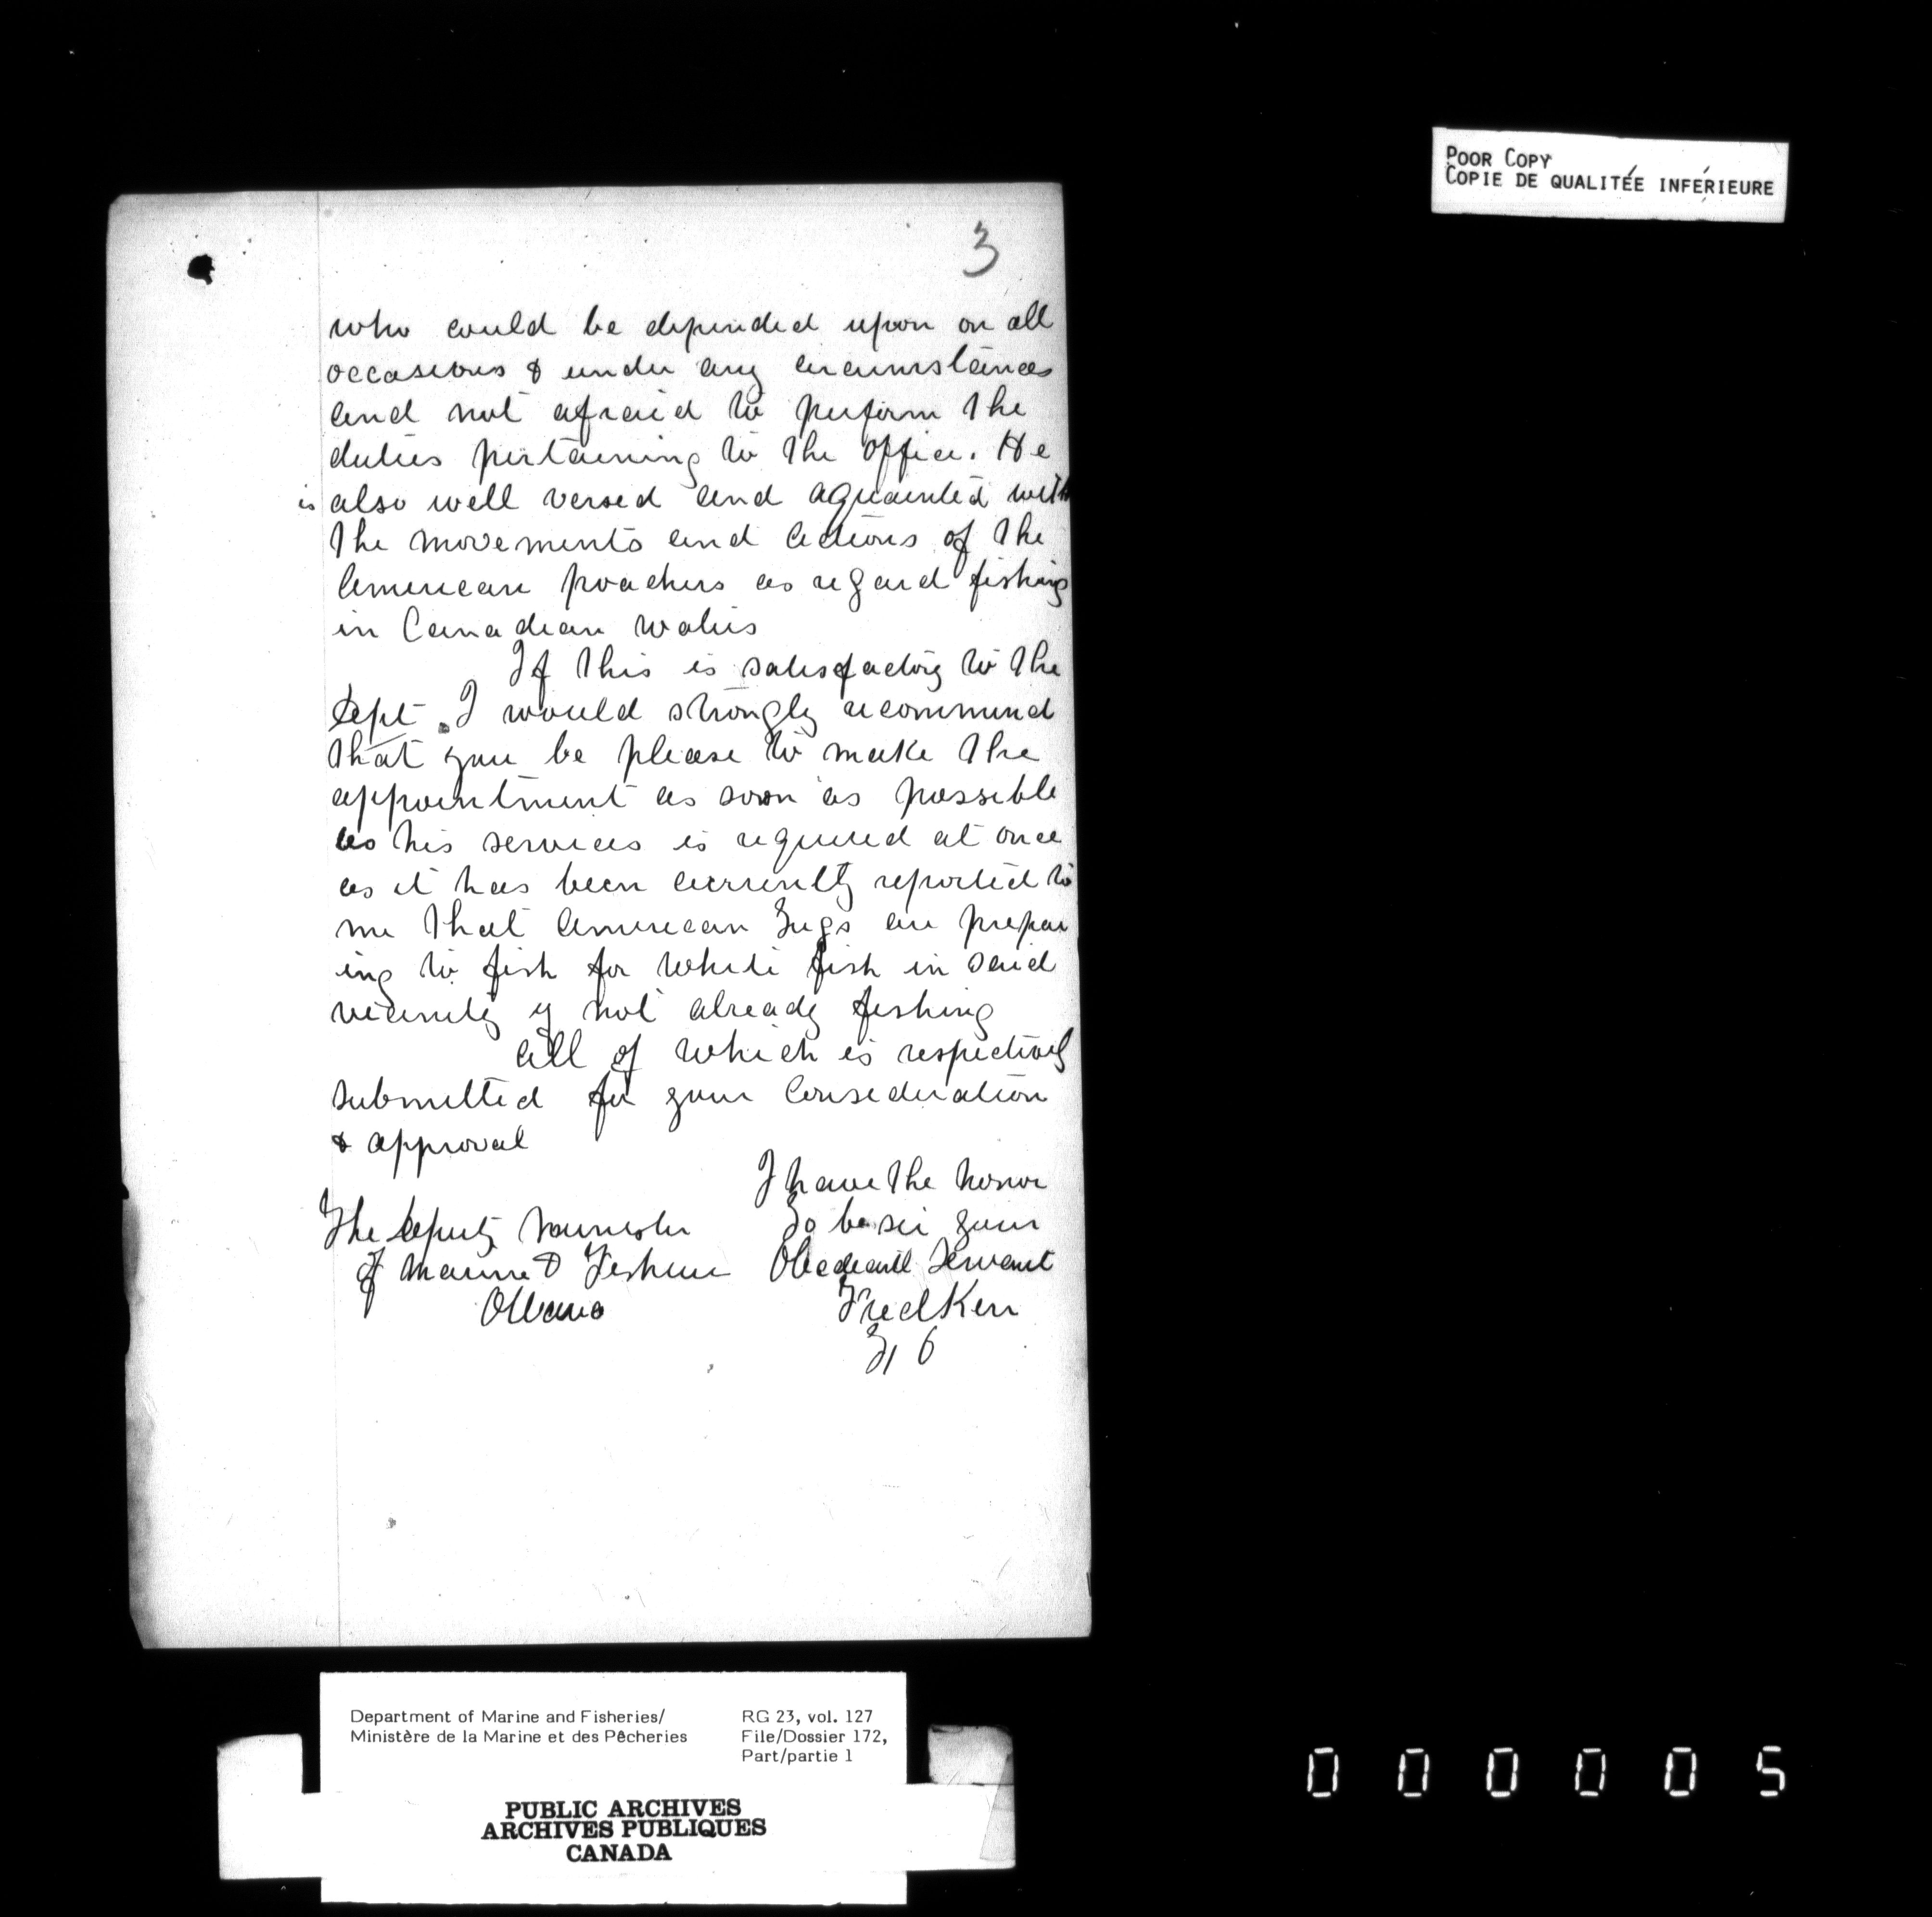 POOR COPY
COPIE DE QUALITÉE INFÉRIEURE
3
who could be depended upon on all
occasions & under any circumstances
and not afraid to perform the
duties pertaining to the office. He
is also well versed and aquainted with
the movements and actions of the
American poachers as regard fishing
in Canadian waters
If this is satisfactory to the
Dept. I would strongly recommend
that you be please to make the
appointment as soon as possible
as his services is required at once
as it has been currently reported to
me that American Tugs are prepar
ing to fish for white fish in said
vicinity if not already fishing
all of which is respectively
submitted for your Consideration
& approval
I have the honor
To be sir your
Obedient Servant
Fred Kerr
The Deputy Minister
of Marine & Fisheries
Ottawa
Department of Marine and Fisheries/
Ministère de la Marine et des Pêcheries
RG 23, vol. 127
File/Dossier 172,
Part/partie 1
PUBLIC ARCHIVES
ARCHIVES PUBLIQUES
CANADA
000005